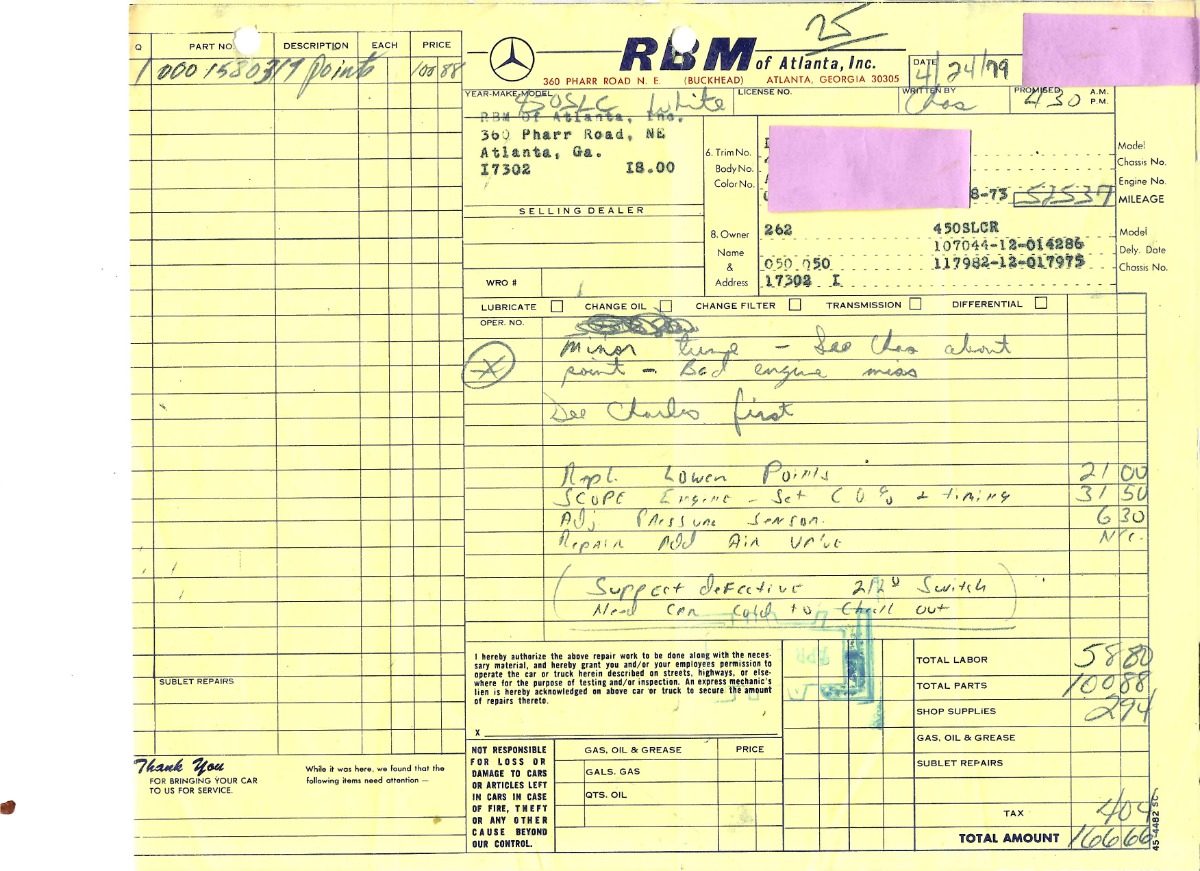 25
RBM of Atlanta, Inc.
360 PHARR ROAD N. E. (BUCKHEAD) ATLANTA, GEORGIA 30305
DATE 4/24/79
YEAR-MAKE-MODEL 450SLC White
LICENSE NO.
WRITTEN BY Chas
PROMISED 430 A.M. P.M.
Q PART NO. DESCRIPTION EACH PRICE
1 000 1580319 points 100 88
RBM of Atlanta, Inc.
360 Pharr Road, NE
Atlanta, Ga.
I7302 I8.00
SELLING DEALER
WRO #
6. Trim No.
Body No.
Color No.
8-73 51537
Model
Chassis No.
Engine No.
MILEAGE
8. Owner 262 450SLCR Model
107044-12-014286
Name Dely. Date
& 050 050 117982-12-017975 Chassis No.
Address 17302 I
LUBRICATE CHANGE OIL CHANGE FILTER TRANSMISSION DIFFERENTIAL
OPER. NO.
Minor tune - See Chas about
point - Bad engine miss
See Charles first
Repl. Lower Points 21 00
SCOPE Engine - Set CO% + timing 31 50
Adj Pressure Sensor. 6 30
Repair Add Air Valve N/C.
(Suppect defective Switch
Need car cold to Check out)
SUBLET REPAIRS
I hereby authorize the above repair work to be done along with the neces-
sary material, and hereby grant you and/or your employees permission to
operate the car or truck herein described on streets, highways, or else-
where for the purpose of testing and/or inspection. An express mechanic's
lien is hereby acknowledged on above car or truck to secure the amount
of repairs thereto.
X
TOTAL LABOR 58 80
TOTAL PARTS 100 88
SHOP SUPPLIES 2 94
GAS, OIL & GREASE
SUBLET REPAIRS
TAX 4 04
TOTAL AMOUNT 166 66
Thank You
FOR BRINGING YOUR CAR
TO US FOR SERVICE.
While it was here, we found that the
following items need attention —
NOT RESPONSIBLE
FOR LOSS OR
DAMAGE TO CARS
OR ARTICLES LEFT
IN CARS IN CASE
OF FIRE, THEFT
OR ANY OTHER
CAUSE BEYOND
OUR CONTROL.
GAS, OIL & GREASE PRICE
GALS. GAS
QTS. OIL
45-4482 SC